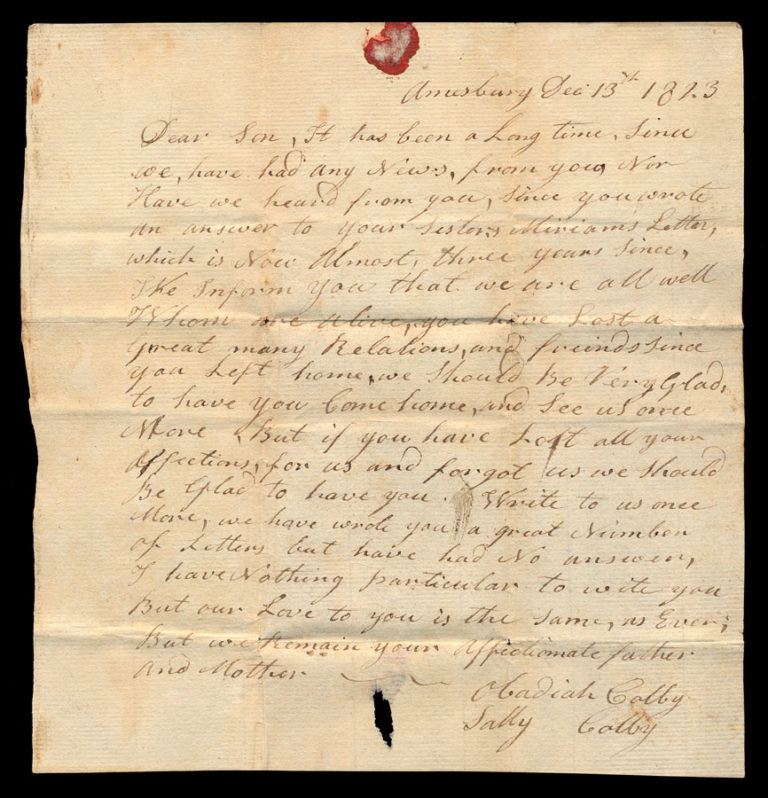 Amesbury Dec 13th 1823
Dear Son, It has been a Long time, Since
we, have had any News, from you, Nor
Have we heard from you, Since you wrote
an answer to your Sisters Miriam's Letter,
which is Now Almost, three years Since,
I Inform You that we are all well
Whom are alive, you have Lost a
great many Relations, and freinds Since
you Left home, we Should Be Very Glad,
to have you Come home, and See us once
More But if you have Lost all your
Affections, for us and forgot us we Should
Be Glad to have you Write to us once
More, we have wrote you a great Number
of Letters but have had No answer,
I have Nothing particular to write you
But our Love to you is the Same, as Ever;
But we Remain your Affectionate father
And Mother
Obadiah Colby
Sally Colby